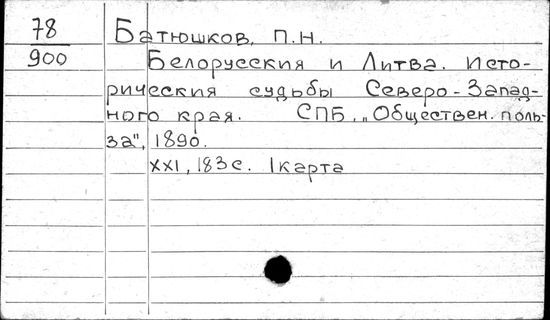 78
900
Батюшков, П.Н.
Белорусския и Литва. Исто-
рическия судьбы Северо-Запад-
ного края. СПБ, „Обществен. поль-
за", 1890.
XXI, 183с. 1карта